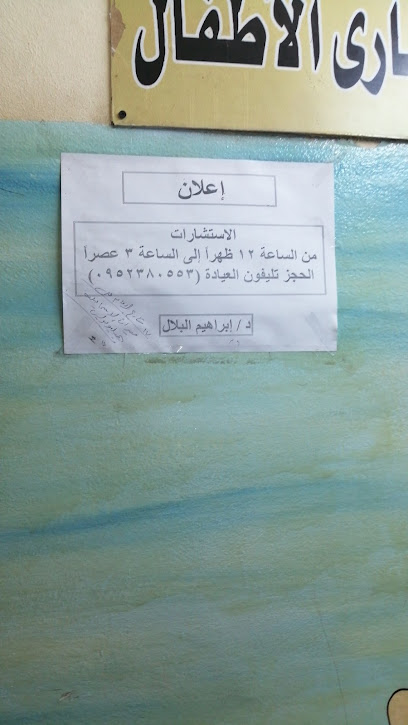 الاطفال
إعلان
الاستشارات
من الساعة ١٢ ظهراً إلى الساعة ٣ عصراً
الحجز تليفون العيادة (٠٩٥٢٣٨٠٥٥٣)
د/ إبراهيم البلال